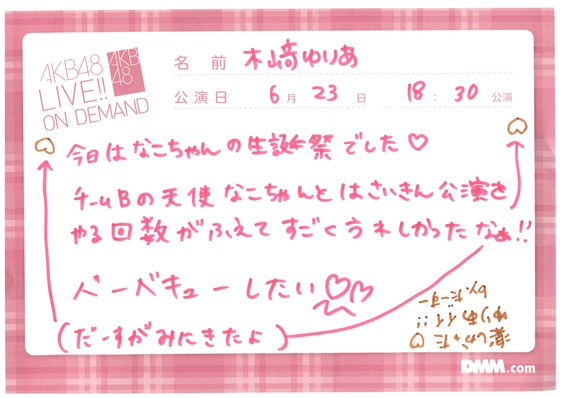 AKB48
LIVE!!
ON DEMAND
AKB
48
名 前 木﨑ゆりあ
公演日 6 月 23 日 18 : 30 公演
今日はなこちゃんの生誕祭でした♡
チームBの天使なこちゃんとはさいきん公演を
やる回数がふえてすごくうれしかったなぁ!!
バーベキューしたい♡♡
(だーすがみにきたよ)
楽しかった♡
ゆりあイイ!!
by.だーすー
DMM.com